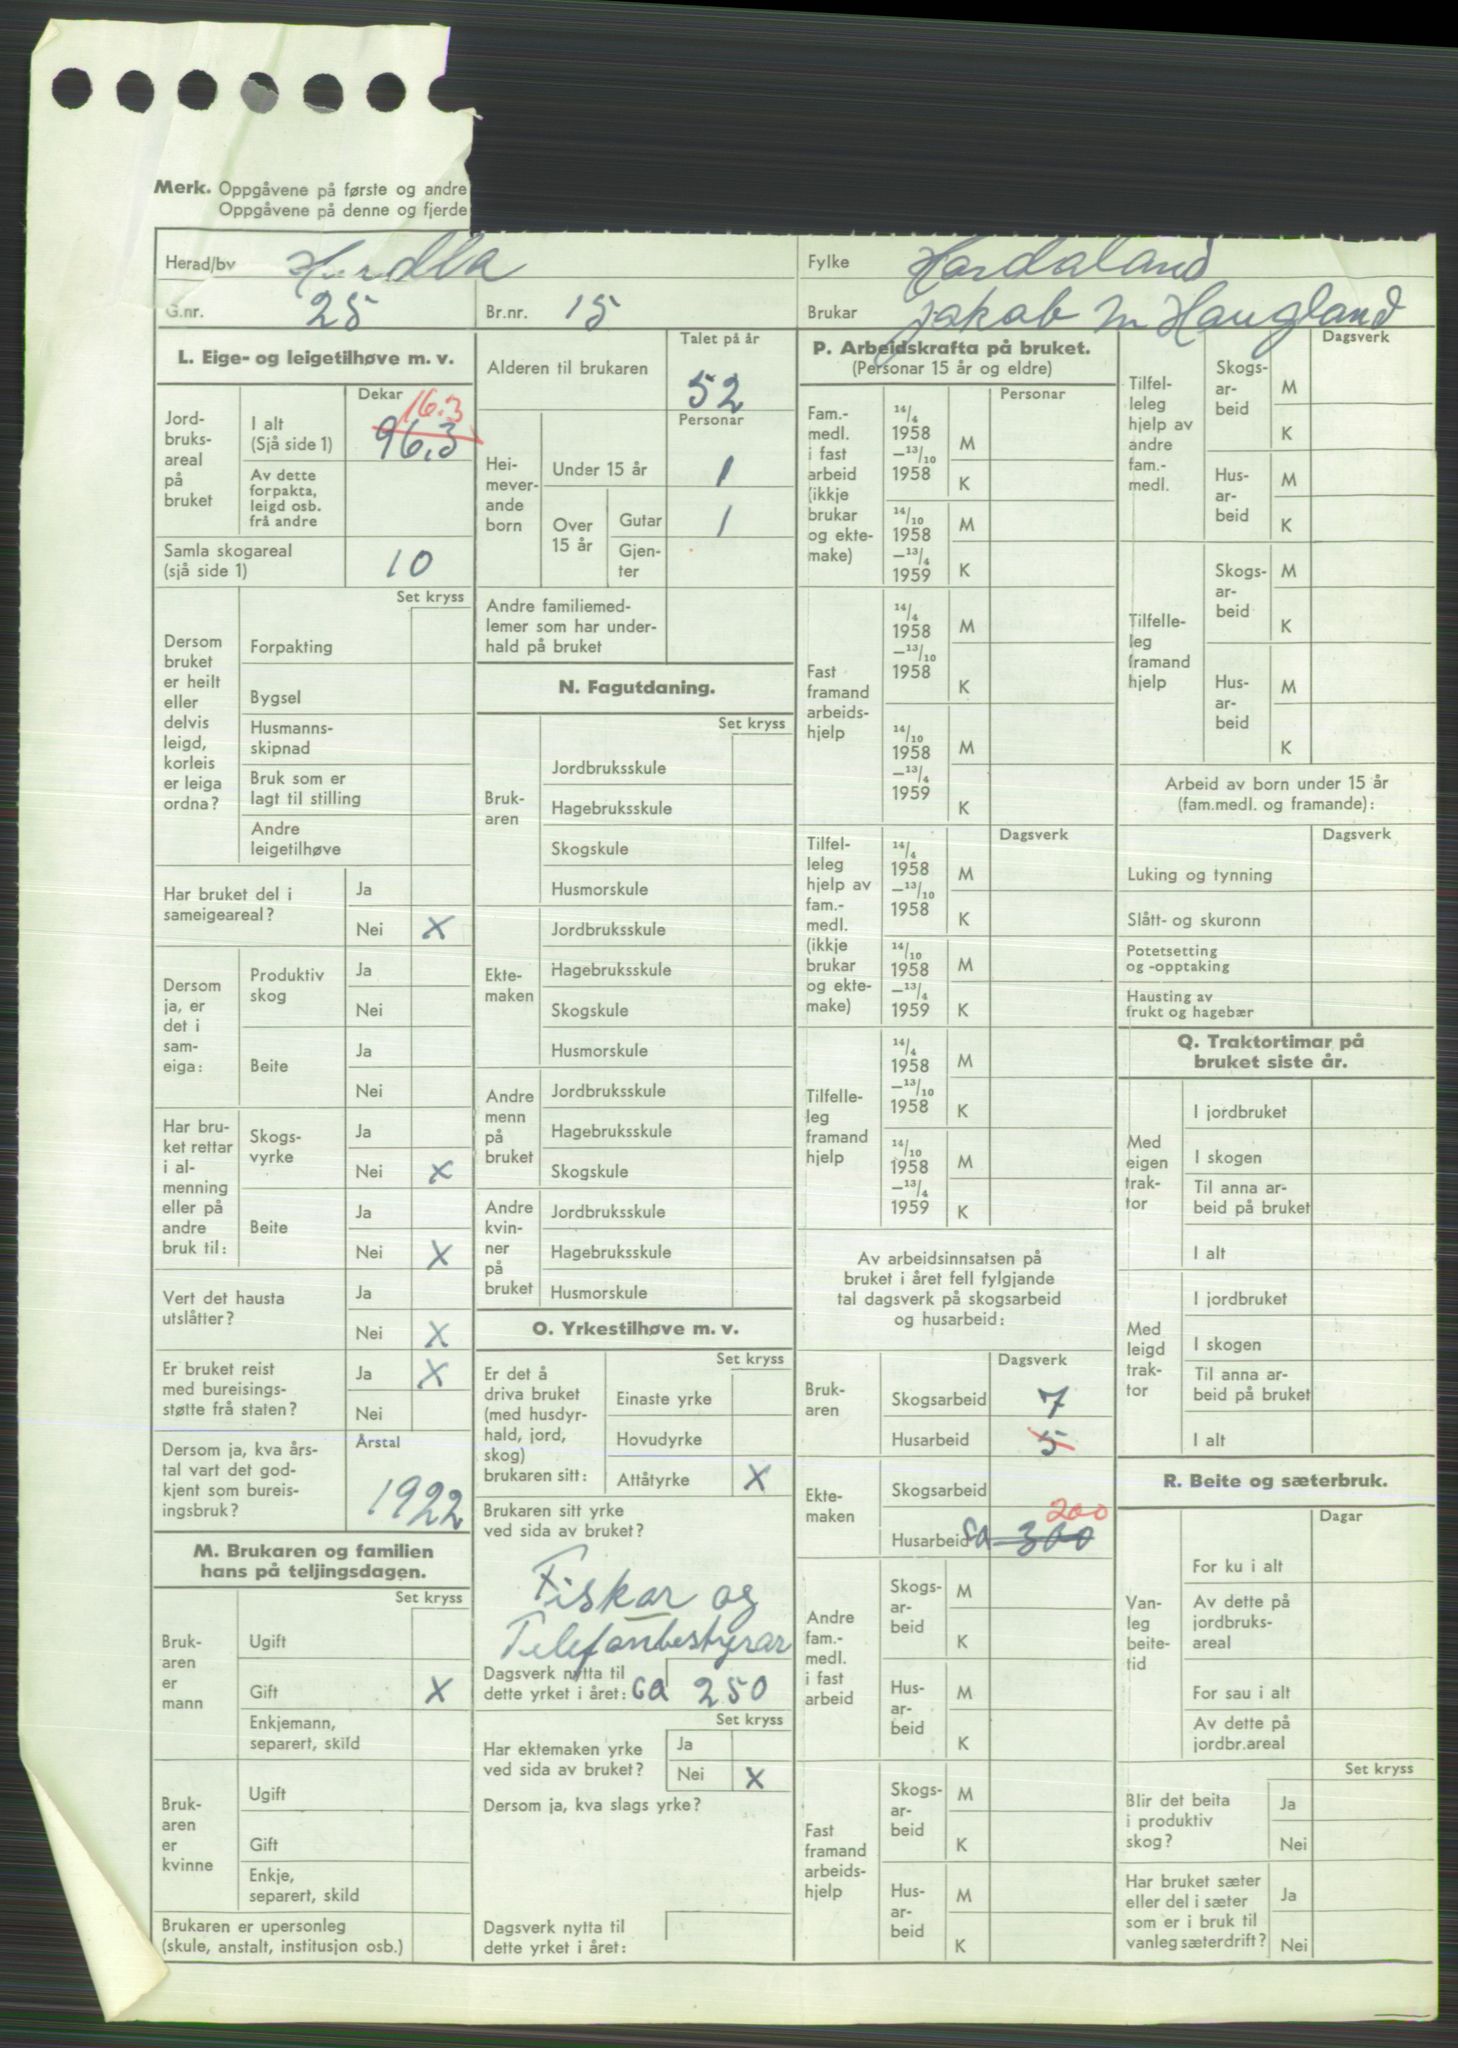 Merk. Oppgåvene på første og andre
Oppgåvene på denne og fjerde
Herad/bv Herdla
Fylke Hordaland
G.nr. 25 Br.nr. 15
Brukar Jakob M Haugland
L. Eige- og leigetilhøve m. v.
Dekar
Jord-
bruks-
areal
på
bruket
I alt
(Sjå side 1)
16.3
96,3
Av dette
forpakta,
leigd osb.
frå andre
Samla skogareal
(sjå side 1)
10
Set kryss
Dersom
bruket
er heilt
eller
delvis
leigd,
korleis
er leiga
ordna?
Forpakting
Bygsel
Husmanns-
skipnad
Bruk som er
lagt til stilling
Andre
leigetilhøve
Har bruket del i
sameigeareal?
Ja
Nei X
Dersom
ja, er
det i
sam-
eiga:
Produktiv
skog
Ja
Nei
Beite
Ja
Nei
Har bru-
ket rettar
i al-
menning
eller på
andre
bruk til:
Skogs-
vyrke
Ja
Nei X
Beite
Ja
Nei X
Vert det hausta
utslåtter?
Ja
Nei X
Er bruket reist
med bureisings-
støtte frå staten?
Ja X
Nei
Dersom ja, kva års-
tal vart det god-
kjent som bureis-
ingsbruk?
Årstal
1922
M. Brukaren og familien
hans på teljingsdagen.
Set kryss
Bruk-
aren
er
mann
Ugift
Gift X
Enkjemann,
separert, skild
Bruk-
aren
er
kvinne
Ugift
Gift
Enkje,
separert, skild
Brukaren er upersonleg
(skule, anstalt, institusjon osb.)
Talet på år
Alderen til brukaren 52
Personar
Hei-
mever-
ande
born
Under 15 år 1
Over
15 år
Gutar 1
Gjen-
ter
Andre familiemed-
lemer som har under-
hald på bruket
N. Fagutdaning.
Set kryss
Bruk-
aren
Jordbruksskule
Hagebruksskule
Skogskule
Husmorskule
Ekte-
maken
Jordbruksskule
Hagebruksskule
Skogskule
Husmorskule
Andre
menn
på
bruket
Jordbruksskule
Hagebruksskule
Skogskule
Andre
kvin-
ner
på
bruket
Jordbruksskule
Hagebruksskule
Husmorskule
O. Yrkestilhøve m. v.
Set kryss
Er det å
driva bruket
(med husdyr-
hald, jord,
skog)
brukaren sitt:
Einaste yrke
Hovudyrke
Attåtyrke X
Brukaren sitt yrke
ved sida av bruket?
Fiskar og
Telefonbestyrar
Dagsverk nytta til
dette yrket i året: ca 250
Set kryss
Har ektemaken yrke
ved sida av bruket?
Ja
Nei X
Dersom ja, kva slags yrke?
Dagsverk nytta til
dette yrket i året:
P. Arbeidskrafta på bruket.
(Personar 15 år og eldre)
Personar
Fam.-
medl.
i fast
arbeid
(ikkje
brukar
og ekte-
make)
14/4
1958
—13/10
1958
M
K
14/10
1958
—13/4
1959
M
K
Fast
framand
arbeids-
hjelp
14/4
1958
—13/10
1958
M
K
14/10
1958
—13/4
1959
M
K
Dagsverk
Tilfel-
leleg
hjelp av
fam.-
medl.
(ikkje
brukar
og ekte-
make)
14/4
1958
—13/10
1958
M
K
14/10
1958
—13/4
1959
M
K
Tilfelle-
leg
framand
hjelp
14/4
1958
—13/10
1958
M
K
14/10
1958
—13/4
1959
M
K
Av arbeidsinnsatsen på
bruket i året fell fylgjande
tal dagsverk på skogsarbeid
og husarbeid:
Dagsverk
Bruk-
aren
Skogsarbeid 7
Husarbeid 5
Ekte-
maken
Skogsarbeid
200
Husarbeid ca 300
Andre
fam.-
medl.
i fast
arbeid
Skogs-
ar-
beid
M
K
Hus-
ar-
beid
M
K
Fast
framand
arbeids-
hjelp
Skogs-
ar-
beid
M
K
Hus-
ar-
beid
M
K
Dagsverk
Tilfel-
leleg
hjelp av
andre
fam.-
medl.
Skogs-
ar-
beid
M
K
Hus-
ar-
beid
M
K
Tilfelle-
leg
framand
hjelp
Skogs-
ar-
beid
M
K
Hus-
ar-
beid
M
K
Arbeid av born under 15 år
(fam.medl. og framande):
Dagsverk
Luking og tynning
Slått- og skuronn
Potetsetting
og -opptaking
Hausting av
frukt og hagebær
Q. Traktortimar på
bruket siste år.
Med
eigen
trak-
tor
I jordbruket
I skogen
Til anna ar-
beid på bruket
I alt
Med
leigd
trak-
tor
I jordbruket
I skogen
Til anna ar-
beid på bruket
I alt
R. Beite og sæterbruk.
Dagar
Van-
leg
beite-
tid
For ku i alt
Av dette på
jordbruks-
areal
For sau i alt
Av dette på
jordbr.areal
Set kryss
Blir det beita
i produktiv
skog?
Ja
Nei
Har bruket sæter
eller del i sæter
som er i bruk til
vanleg sæterdrift?
Ja
Nei